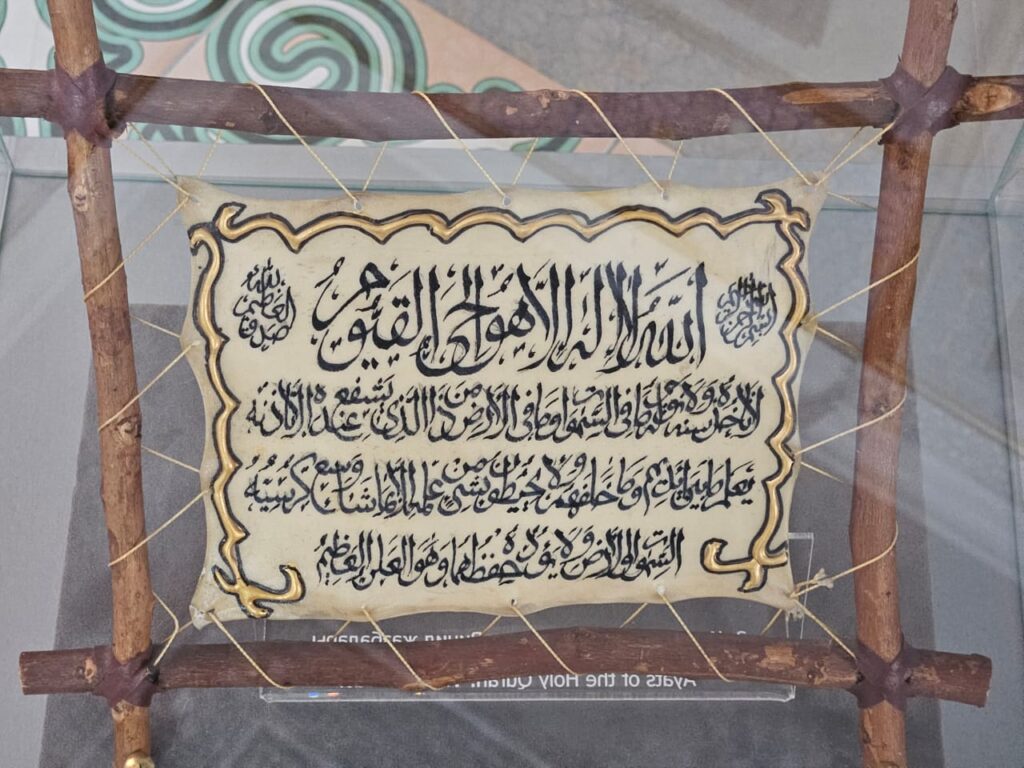 بسم الله الرحمن الرحيم
الله لا اله الا هو الحي القيوم
صدق الله العظيم
لا تاخذه سنة ولا نوم له ما في السموات وما في الارض من ذا الذي يشفع عنده الا باذنه
يعلم ما بين ايديهم وما خلفهم ولا يحيطون بشئ من علمه الا بما شاء وسع كرسيه
السموات والارض ولا يؤده حفظهما وهو العلي العظيم
Ayats of the Holy Quran.